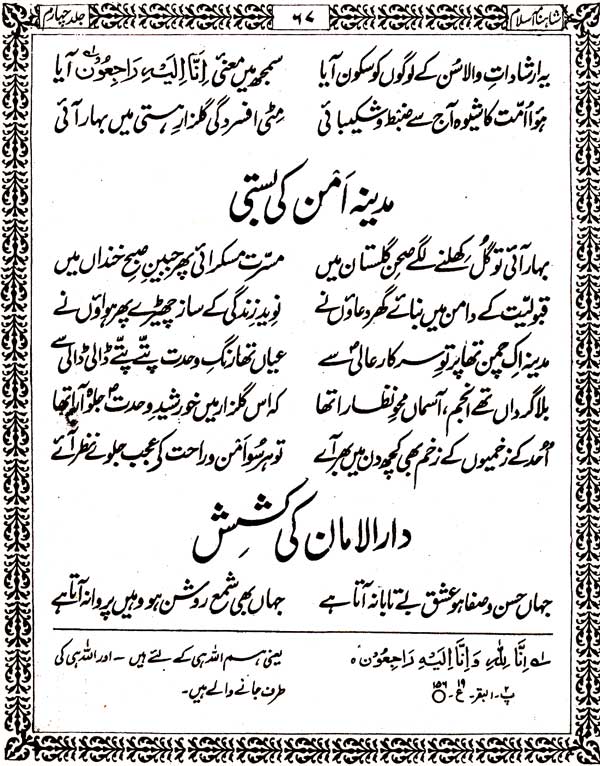 شاہنامۂ اسلام ۶۷ جلد چہارم
یہ ارشاداتِ والا سُن کے لوگوں کو سکون آیا سمجھ میں معنیٔ اِنَّا اِلَیْہِ رَاجِعُوْن ؎۱ آیا
ہُوا اُمّت کا شیوہ آج سے ضبط و شکیبائی مِٹی افسردگی گلزارِ ہستی میں بہار آئی
مدینہ اَمْن کی بستی
بہار آئی تو گُل کِھلنے لگے صحنِ گلستاں میں مسرّت مسکرائی پھر جبینِ صبحِ خنداں میں
قبولیّت کے دامن میں بنائے گھر دعاؤں نے نویدِ زندگی کے ساز چھیڑے پھر ہواؤں نے
مدینہ اِک چمن تھا پرتوِ سرکارِ عالیؐ سے عیاں تھا رنگِ وحدت پتّے پتّے ڈالی ڈالی سے
بلا گرداں تھے انجم، آسماں محوِ نظارا تھا کہ اس گلزار میں خورشیدِ وحدتؐ جلوہ آرا تھا
اُحد کے زخمیوں کے زخم بھی کچھ دن میں بھر آئے تو ہر سُو اَمْن و راحت کی عجب جلوے نظر آئے
دارالامان کی کشِش
جہاں حسن و صفا ہو عشق بے تابانہ آتا ہے جہاں بھی شمع روشن ہو وہیں پروانہ آتا ہے
؎۱ اِنَّا لِلّٰہِ وَاِنَّا اِلَیْہِ رَاجِعُوْنَ ہ یعنی ہم اللہ ہی کے لئے ہیں ۔ اور اللہ ہی کی
پ۲۔ البقر۔ ع۱۹۔ ۱۵۶ طرف جانے والے ہیں۔